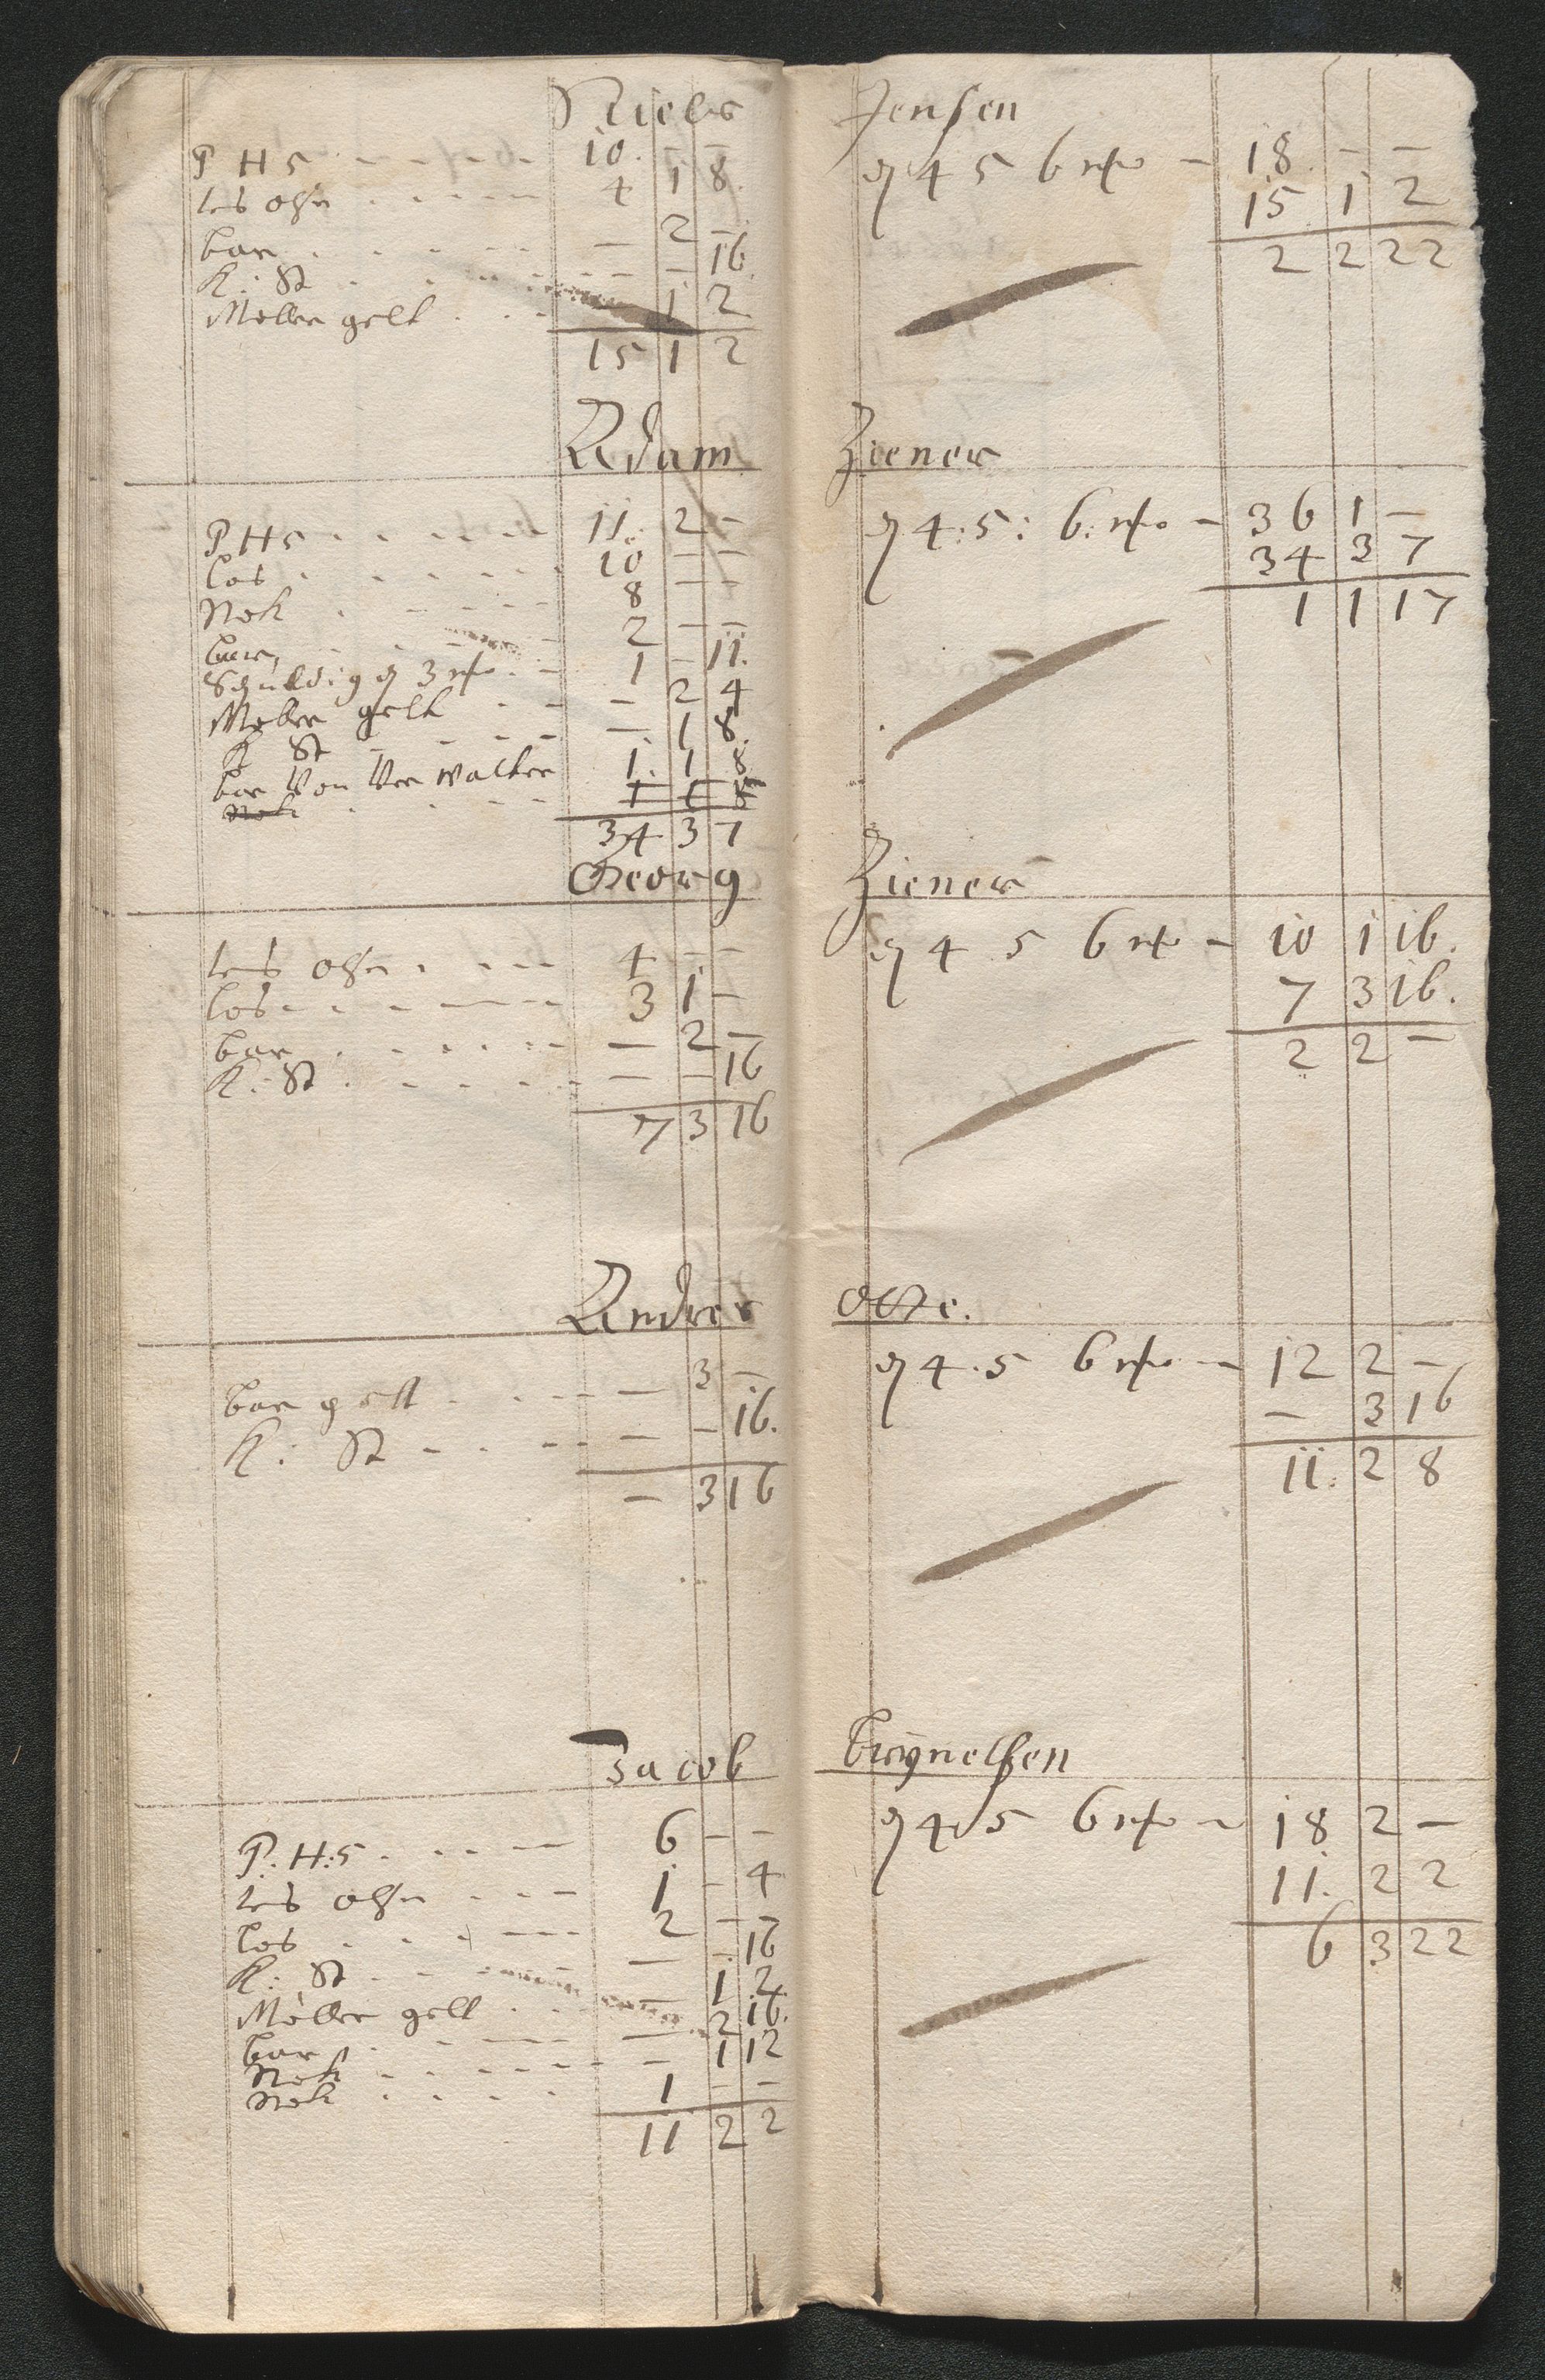 Niels Jensen
P H 5 - - - - - 10. - -
les ohn . . . . . 4 1 8.
bar . . . . . - 2 -
K: St . . . . . - - 16.
Møller gelt . . . 1 2
15 1 2
4 5 6 - 18. - -
15 1 2
2 2 22
Adam Ziener
P H 5 . . . . . 11. 2 -
los . . . . . 10 - -
Nok . . . . . 8 - -
bar, . . . . . 2 - -
Schuldig 3 . - 1 - 11.
Møller gelt . - - 2 4
K St - - - - - 1 8.
bar Von Ver walter 1. 1 8
Nok . . . . 1 1 8
34 3 7
4:5: 6: - 36 1 -
34 3 7
1 1 17
Georg Ziener
les ohn . . . . 4 - -
los . . . . . 3 1 -
bar . . . . . - 2 -
K: St . . . . . - - 16
7 3 16
4 5 6 - 10 1 16.
7 3 16.
2 2 -
Andres Otte.
bar gelt . . . - 3 -
K: St - . . - - - 16.
- 3 16
4.5 6 - 12 2 -
- 3 16
11. 2 8
Jacob Brynelsen
P. H:5 . . . - 6 - -
les ohn . . . - 1 - 4
los . . . - - 2 - -
K: St . . . . - - 16
Møller gelt . . . - 1 2
bar . . . - - 2 16.
Nok - . . . . - 1 12
Nok . . . . 1 - -
11 2 2
4 5 6 - 18 2 -
11. 2 2
6 3 22